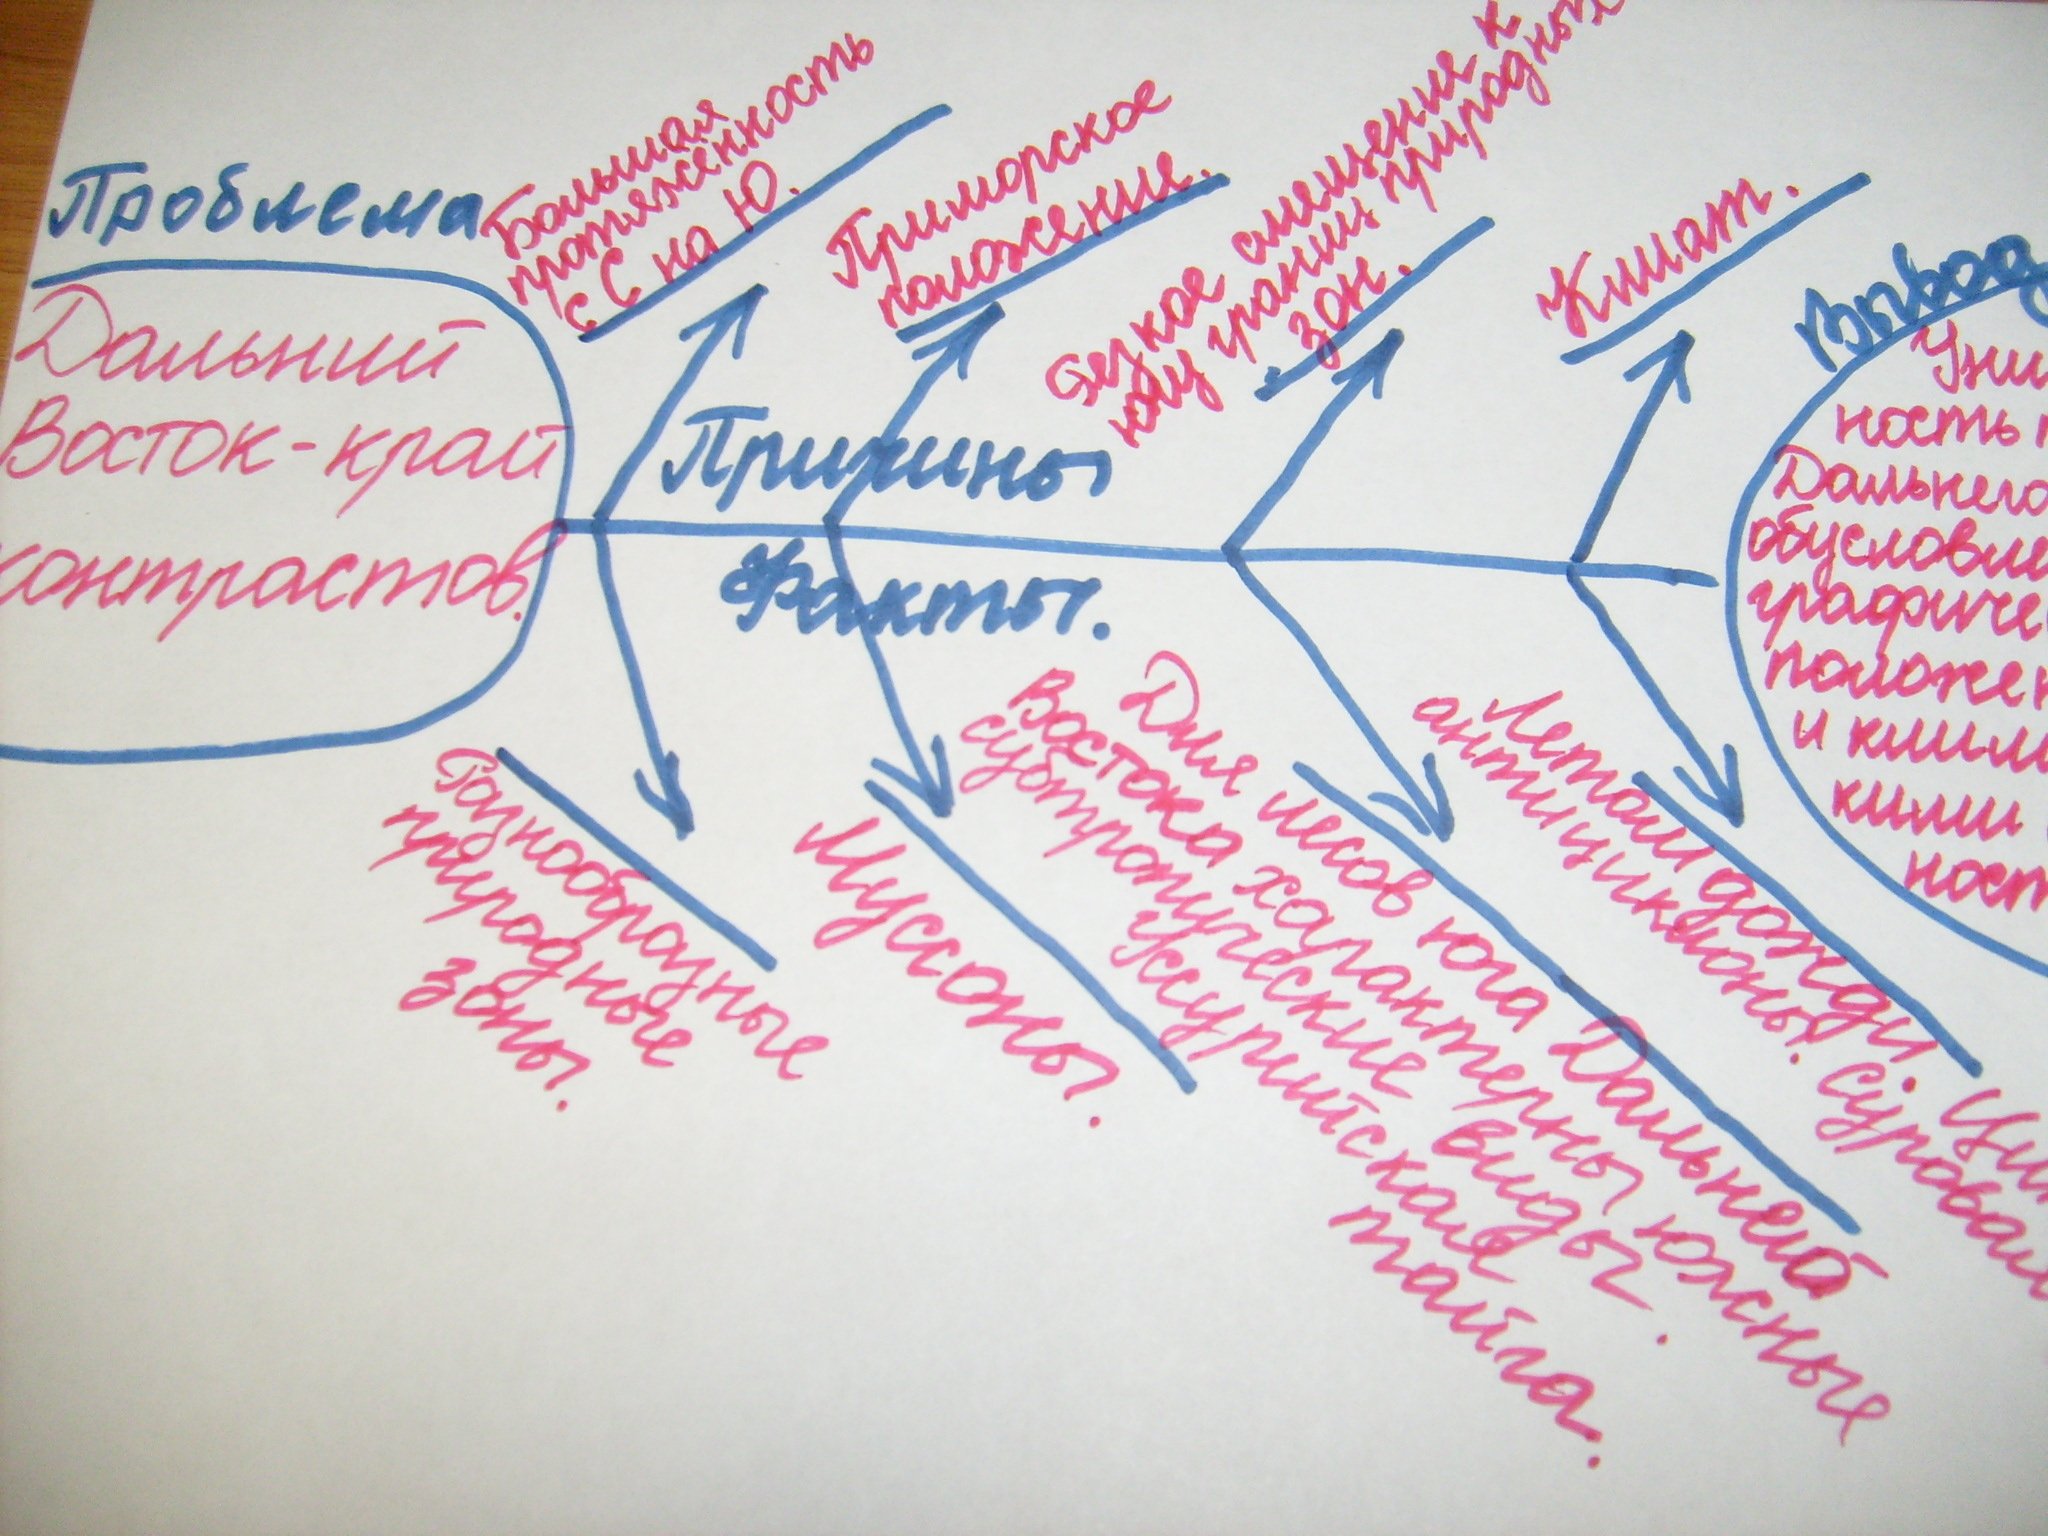 Проблема
Дальний
Восток-край
контрастов.
Большая
протяжённость
с С на Ю.
Приморское
положение.
Резкое смещение к
югу границ природных
зон.
Климат.
Причины
Факты.
Разнообразные
природные
зоны.
Муссоны.
Для лесов юга Дальнего
Востока характерны южные
субтропические виды.
Уссурийская
тайга.
Летом дожди.
антициклоны.
Вывод
Уни
ность п
Дальнего
обусловле
графичес
положен
и клима
кими
ност